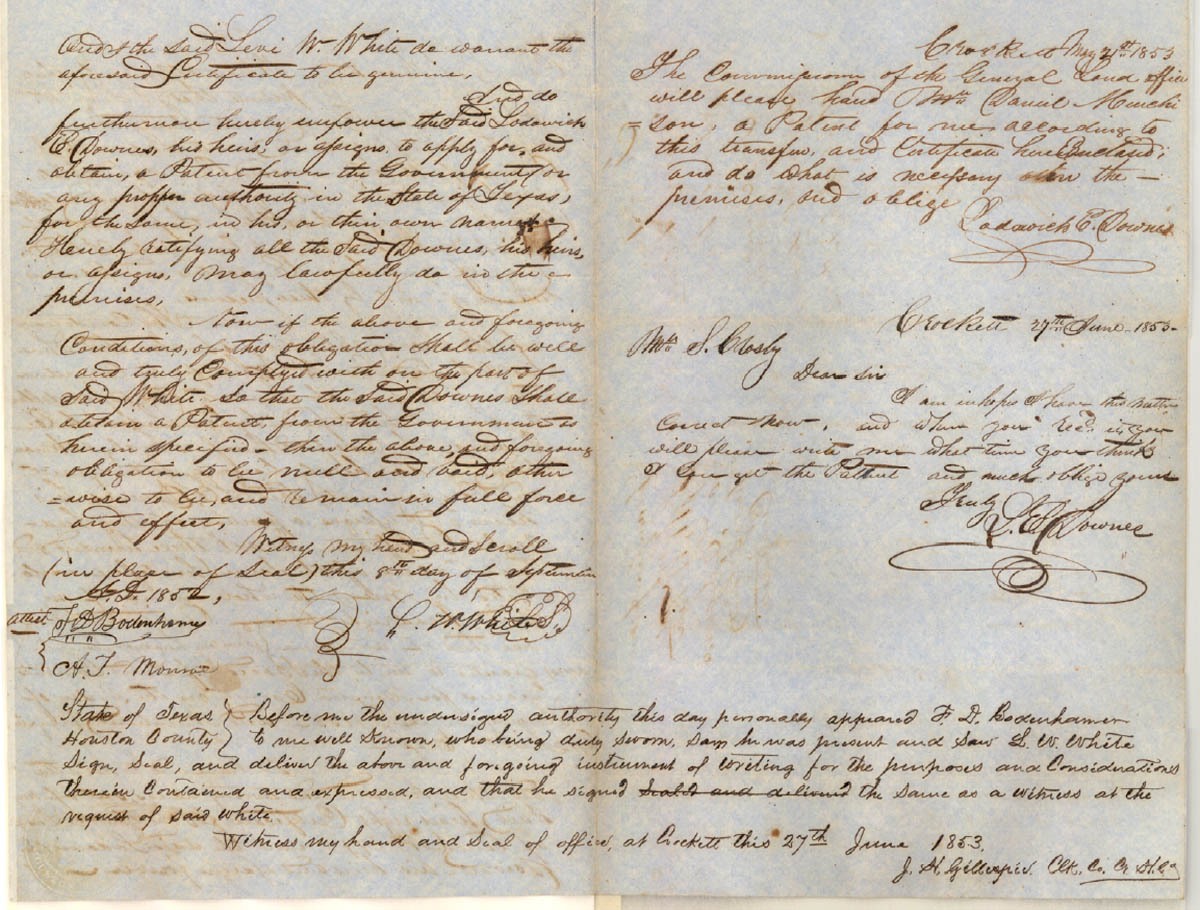 And I the Said Levi Wm White do warrant the
aforesaid Certificate to be genuine,
And do
furthermore hereby empower the Said Lodawick
E. Downes, his heirs, or assigns, to apply for, and
obtain, a Patent from the Government, or
any propper authority in the State of Texas,
for the Same, in his, or their own names,
Hereby ratifying all the Said Downes, his heirs,
or assigns, May lawfully do in the
premises,
Now if the above and foregoing
Conditions, of this obligation Shall be well
and truly Complyed with on the part of
Said White so that the Said Downes Shall
obtain a Patent from the Government as
herein specified - then the above, and foregoing
obligation to be null and void, other
=wise to be, and remain in full force
and effect,
Witness my hand and Scroll
(in place of Seal) this 8th day of September
A.D. 1852,
attest
F D Bodenhamer
L. W. White
A. T. Monroe
Crockett May 21st 1853
The Commissioner of the General Land office
will please hand Mr Daniel Murchi
=son, a Patent for me according to
this transfer, and Certificate herein enclosed;
and do what is necessary in the
premises, and oblige
Lodawick E. Downes
Crockett 27th June 1853-
Mr S. Crosby
Dear Sir
I am in hopes I have this matter
Correct Now, and when you Recd. it, you
will please write me what time you think
I can get the Patent and much oblige yours
Truly
L. E. Downes
State of Texas } Before me the undersigned authority this day personally appeared F. D. Bodenhamer
Houston County } to me well known, who being duly sworn, says he was present and saw L. W. White
Sign, Seal, and deliver the above and foregoing instrument of writing for the purposes and Considerations
therein Contained and expressed, and that he signed Seald and delivered the same as a witness at the
request of said White.
Witness my hand and Seal of office, at Crockett this 27th June 1853.
J. H. Gillespie. Clk. Co. Ct. H. Co